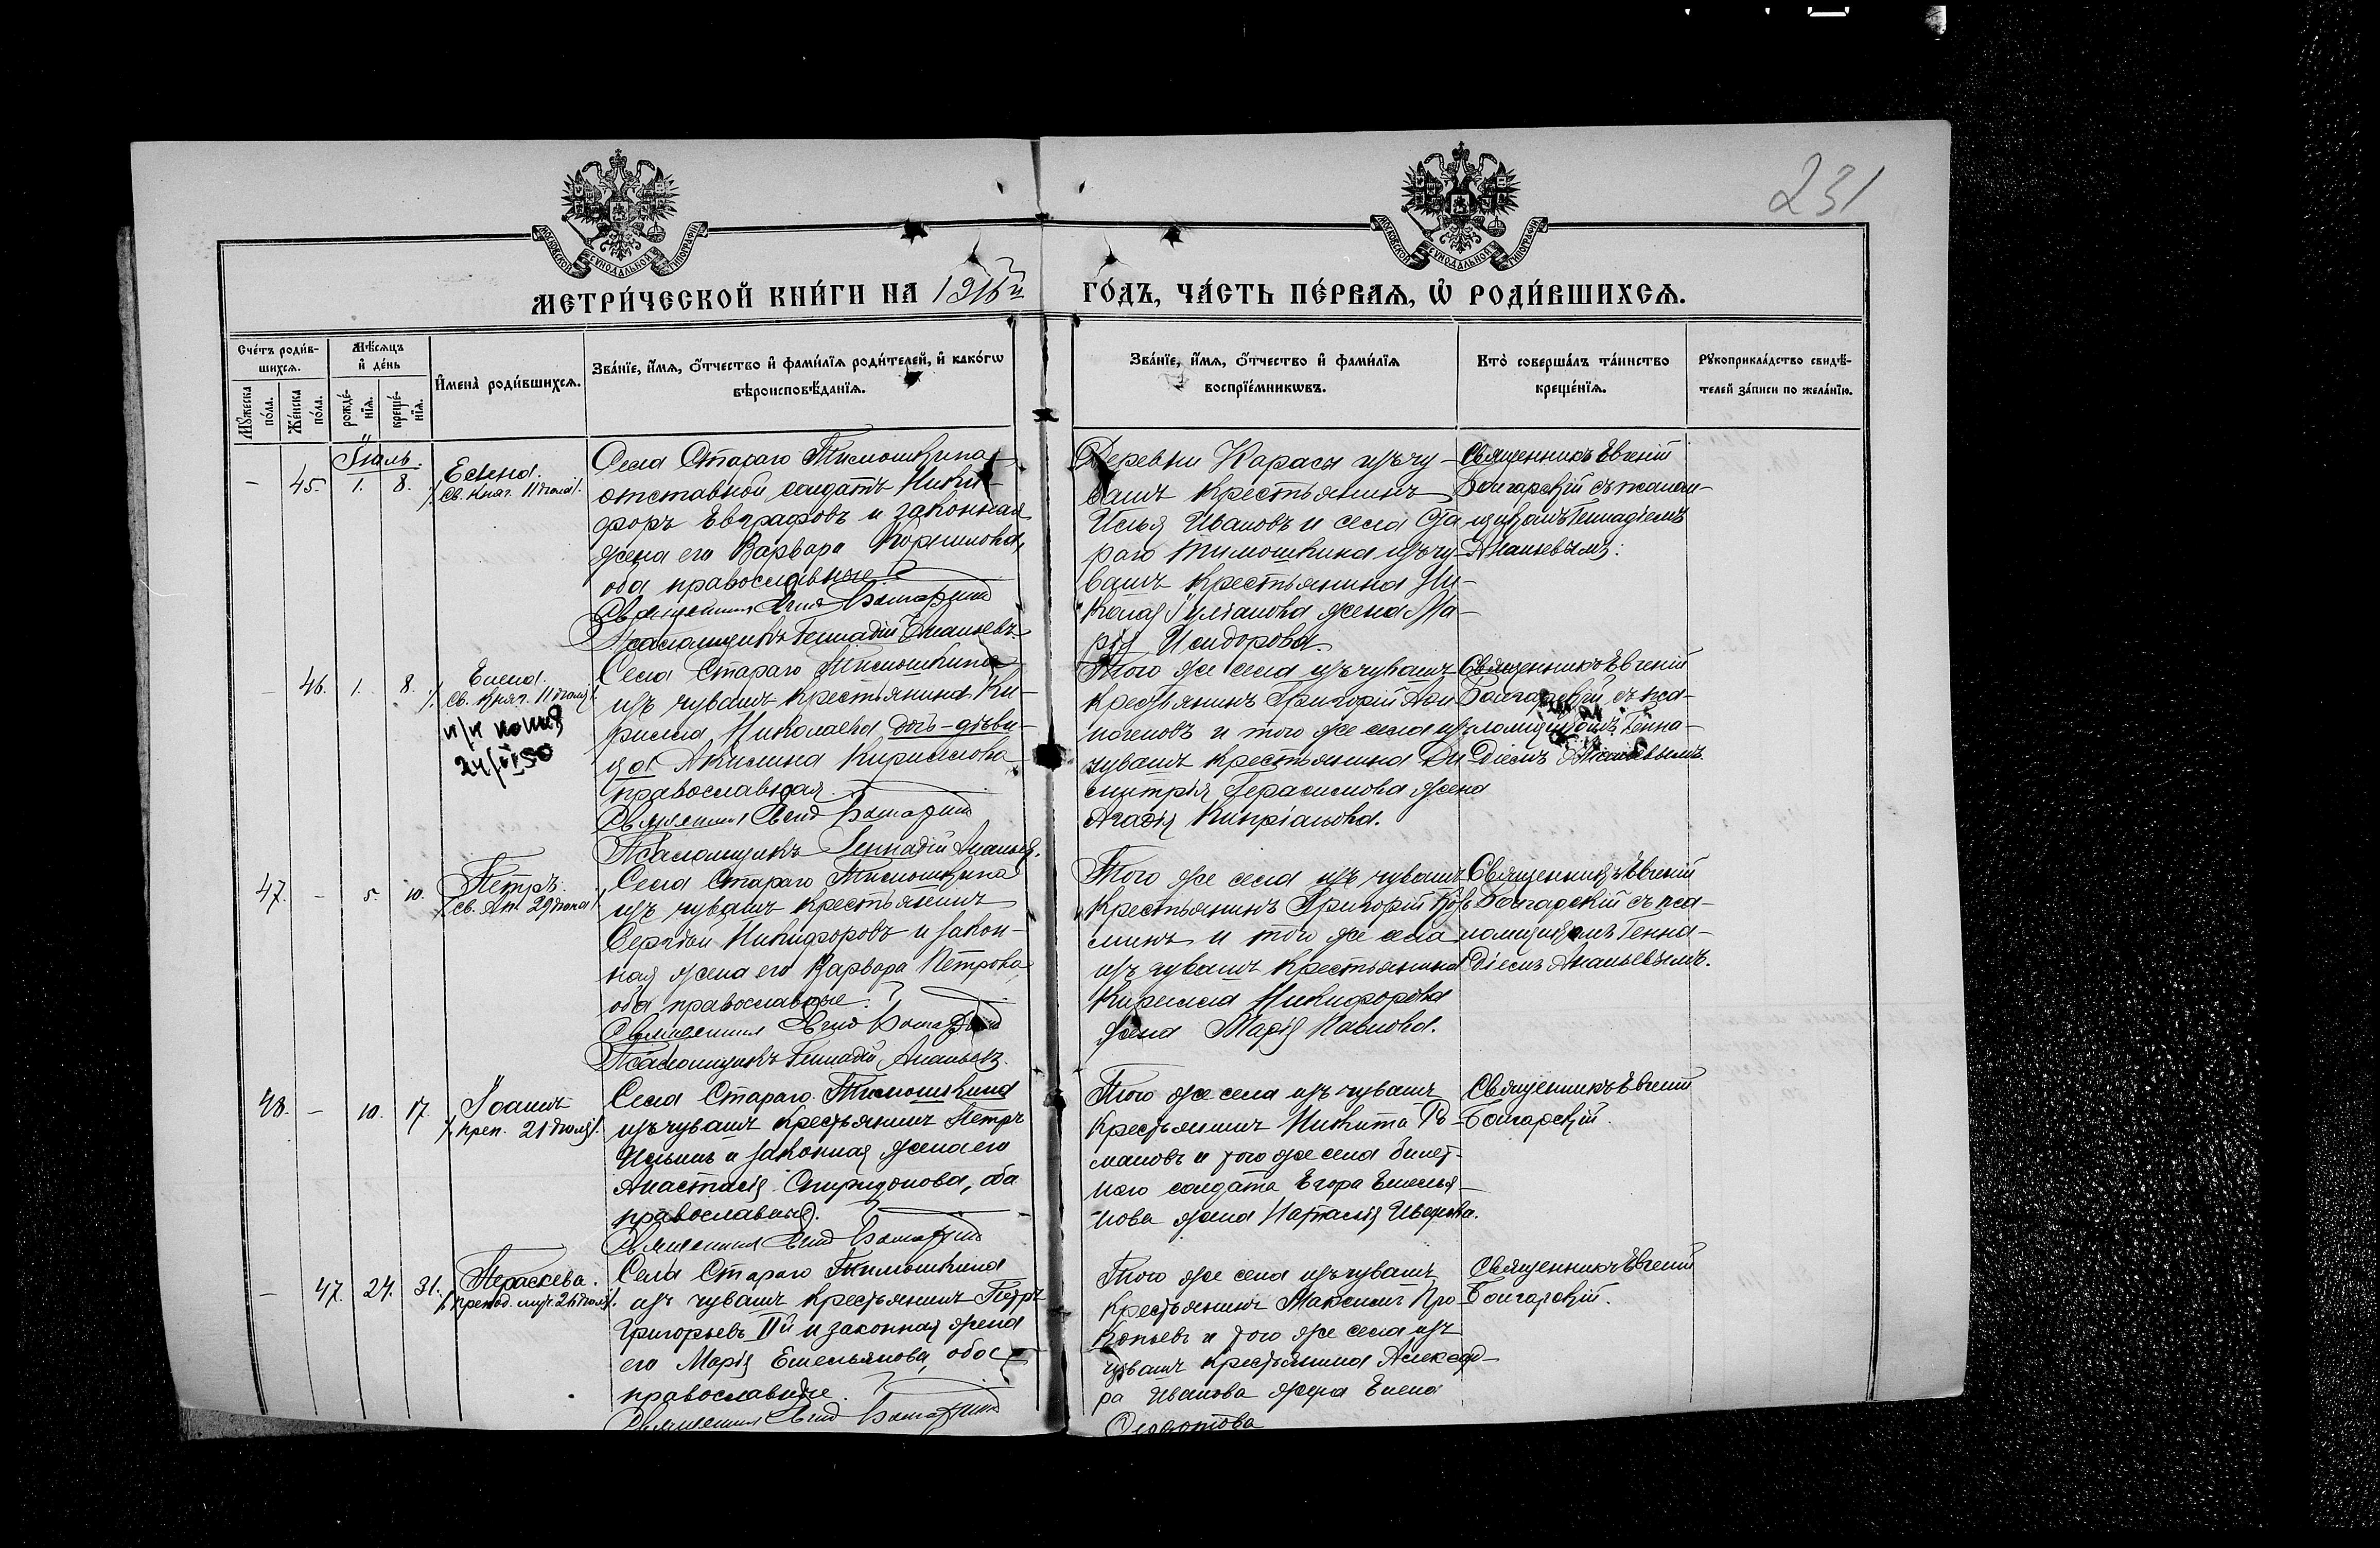 231
МОСКОВСКОЙ СУНОДАЛЬНОЙ ТИПОГРАФІИ
МОСКОВСКОЙ СУНОДАЛЬНОЙ ТИПОГРАФІИ
МЕТРИ́ЧЕСКОЙ КНИ́ГИ НА 1916й ГО́ДЪ, ЧА́СТЬ ПЕ́РВАѦ, Ѡ҆ РОДИ́ВШИХСѦ.
Сче́тъ роди́в-
шихсѧ.
Мꙋ́жеска по́ла.
Же́нска по́ла.
Мѣ́сѧцъ
и҆ де́нь
рожде́-
нїѧ.
креще́-
нїѧ.
И҆мена̀ роди́вшихсѧ.
Зва́нїе, и҆́мѧ, ѻ҆́тчество и҆ фами́лїѧ роди́телей, и҆ како́гѡ
вѣроисповѣ́данїѧ.
Зва́нїе, и҆́мѧ, ѻ҆́тчество и҆ фами́лїѧ
воспрїе́мникѡвъ.
Кто̀ соверша́лъ та́инство
креще́нїѧ.
Рꙋкоприкла́дство свидѣ́-
телей за́писи по жела́нїю.
Іюль.
- 45. 1. 8.
Елена.
/Св. княг. 11 Іюля/.
Села Стараго Тимошкина
отставной солдатъ Ники-
форъ Евграфовъ и законная
жена его Варвара
оба православные.
Священникъ Евгеній Болгарскій
Псаломщикъ Геннадій Ананьевъ
Деревни Карасы изъ чу-
вашъ крестьянинъ
Илья Ивановъ и села Ста
раго Тимошкина изъ чу-
вашъ крестьянина Ни-
колая Іуліанова жена Ма-
рія Исидорова.
Священникъ Евгеній
Болгарскій съ псалом-
щикомъ Геннадіемъ
Ананьевымъ.
- 46. 1. 8.
Елена.
/Св. княг. 11 Іюля/.
н/н копия
24/II 50
Села Стараго Тимошкина
изъ чувашъ крестьянина Ки-
рилла Николаева дочь-дѣви-
ца Акилина Кириллова
православная.
Священникъ Евгеній Болгарскій
Псаломщикъ Геннадій Ананьевъ.
Того же села изъ чувашъ
крестьянинъ Григорій Аѳи
ногеновъ и того же села изъ
чувашъ крестьянина Ди
митрія Герасимова жена
Агаѳія Кипріанова.
Священникъ Евгеній
Болгарскій съ пса-
ломщикомъ Генна-
діемъ Ананьевымъ.
47. - 5. 10.
Петръ.
/Св. Ап. 29 Іюня/
Села Стараго Тимошкина
изъ чувашъ крестьянинъ
Сергѣй Никифоровъ и закон-
ная жена его Варвара Петрова
оба православные.
Священникъ Евгеній Болгарскій
Псаломщикъ Геннадій Ананьевъ.
Того же села изъ чувашъ
крестьянинъ Григорій Козь
минъ и того же села
изъ чувашъ крестьянина
Кирилла Никифорова
жена Марія Павлова.
Священникъ Евгеній
Болгарскій съ пса-
ломщикомъ Генна-
діемъ Ананьевымъ.
48. - 10. 17.
Іоаннъ
/Преп. 21 Іюля/.
Села Стараго Тимошкина
изъ чувашъ крестьянинъ Петръ
Ильинъ и законная жена его
Анастасія Спиридонова, оба
православные.
Священникъ Евгеній Болгарскій
Того же села изъ чувашъ
крестьянинъ Никита Ро-
мановъ и того же села билет-
наго солдата Егора Емелья-
нова жена Наталія Иванова.
Священникъ Евгеній
Болгарскій.
- 47. 24. 31.
Параскева.
/Преподобномуч. 26 Іюля/.
Села Стараго Тимошкина
изъ чувашъ крестьянинъ Петръ
Григорьевъ IIй и законная жена
его Марія Емельянова, оба
православные.
Священникъ Евгеній Болгарскій
Того же села изъ чувашъ
крестьянинъ Максимъ Про-
копьевъ и того же села изъ
чувашъ крестьянина Александ-
ра Иванова жена Елена
Ѳедотова
Священникъ Евгеній
Болгарскій.